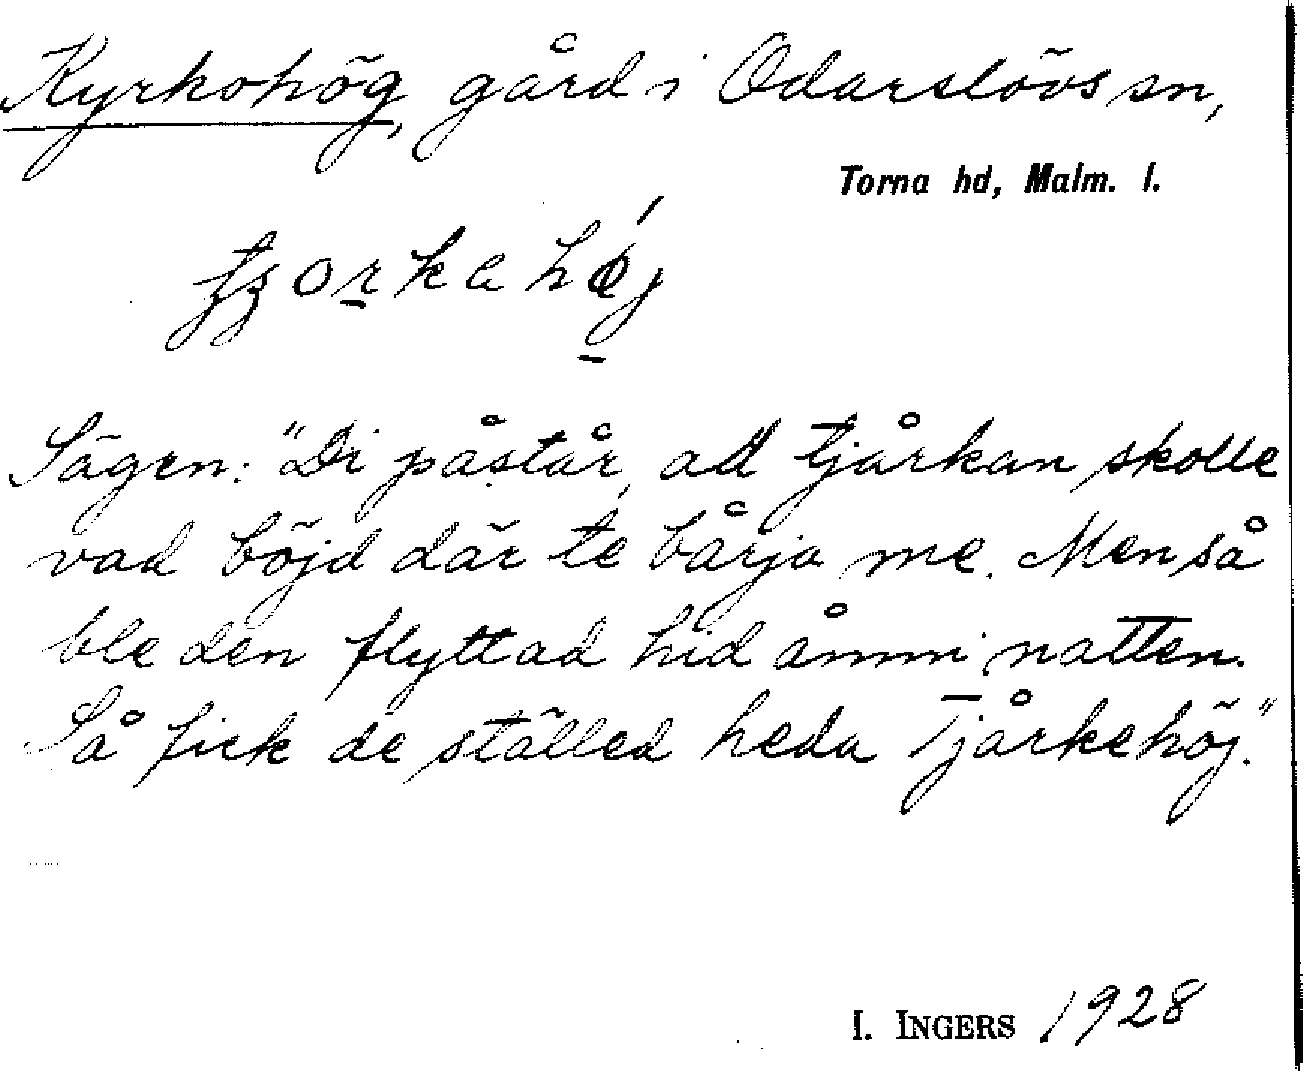 Kyrkohög, gård i Odarslövs sn,
Torna hd, Malm. l.
Sägen: "Di påstår, att tjårkan skolle
vad böjd där te bårja me. Men så
ble den flyttad hid åmm natten.
Så fick de ställed heda Tjårkehöj."
I. INGERS 1928